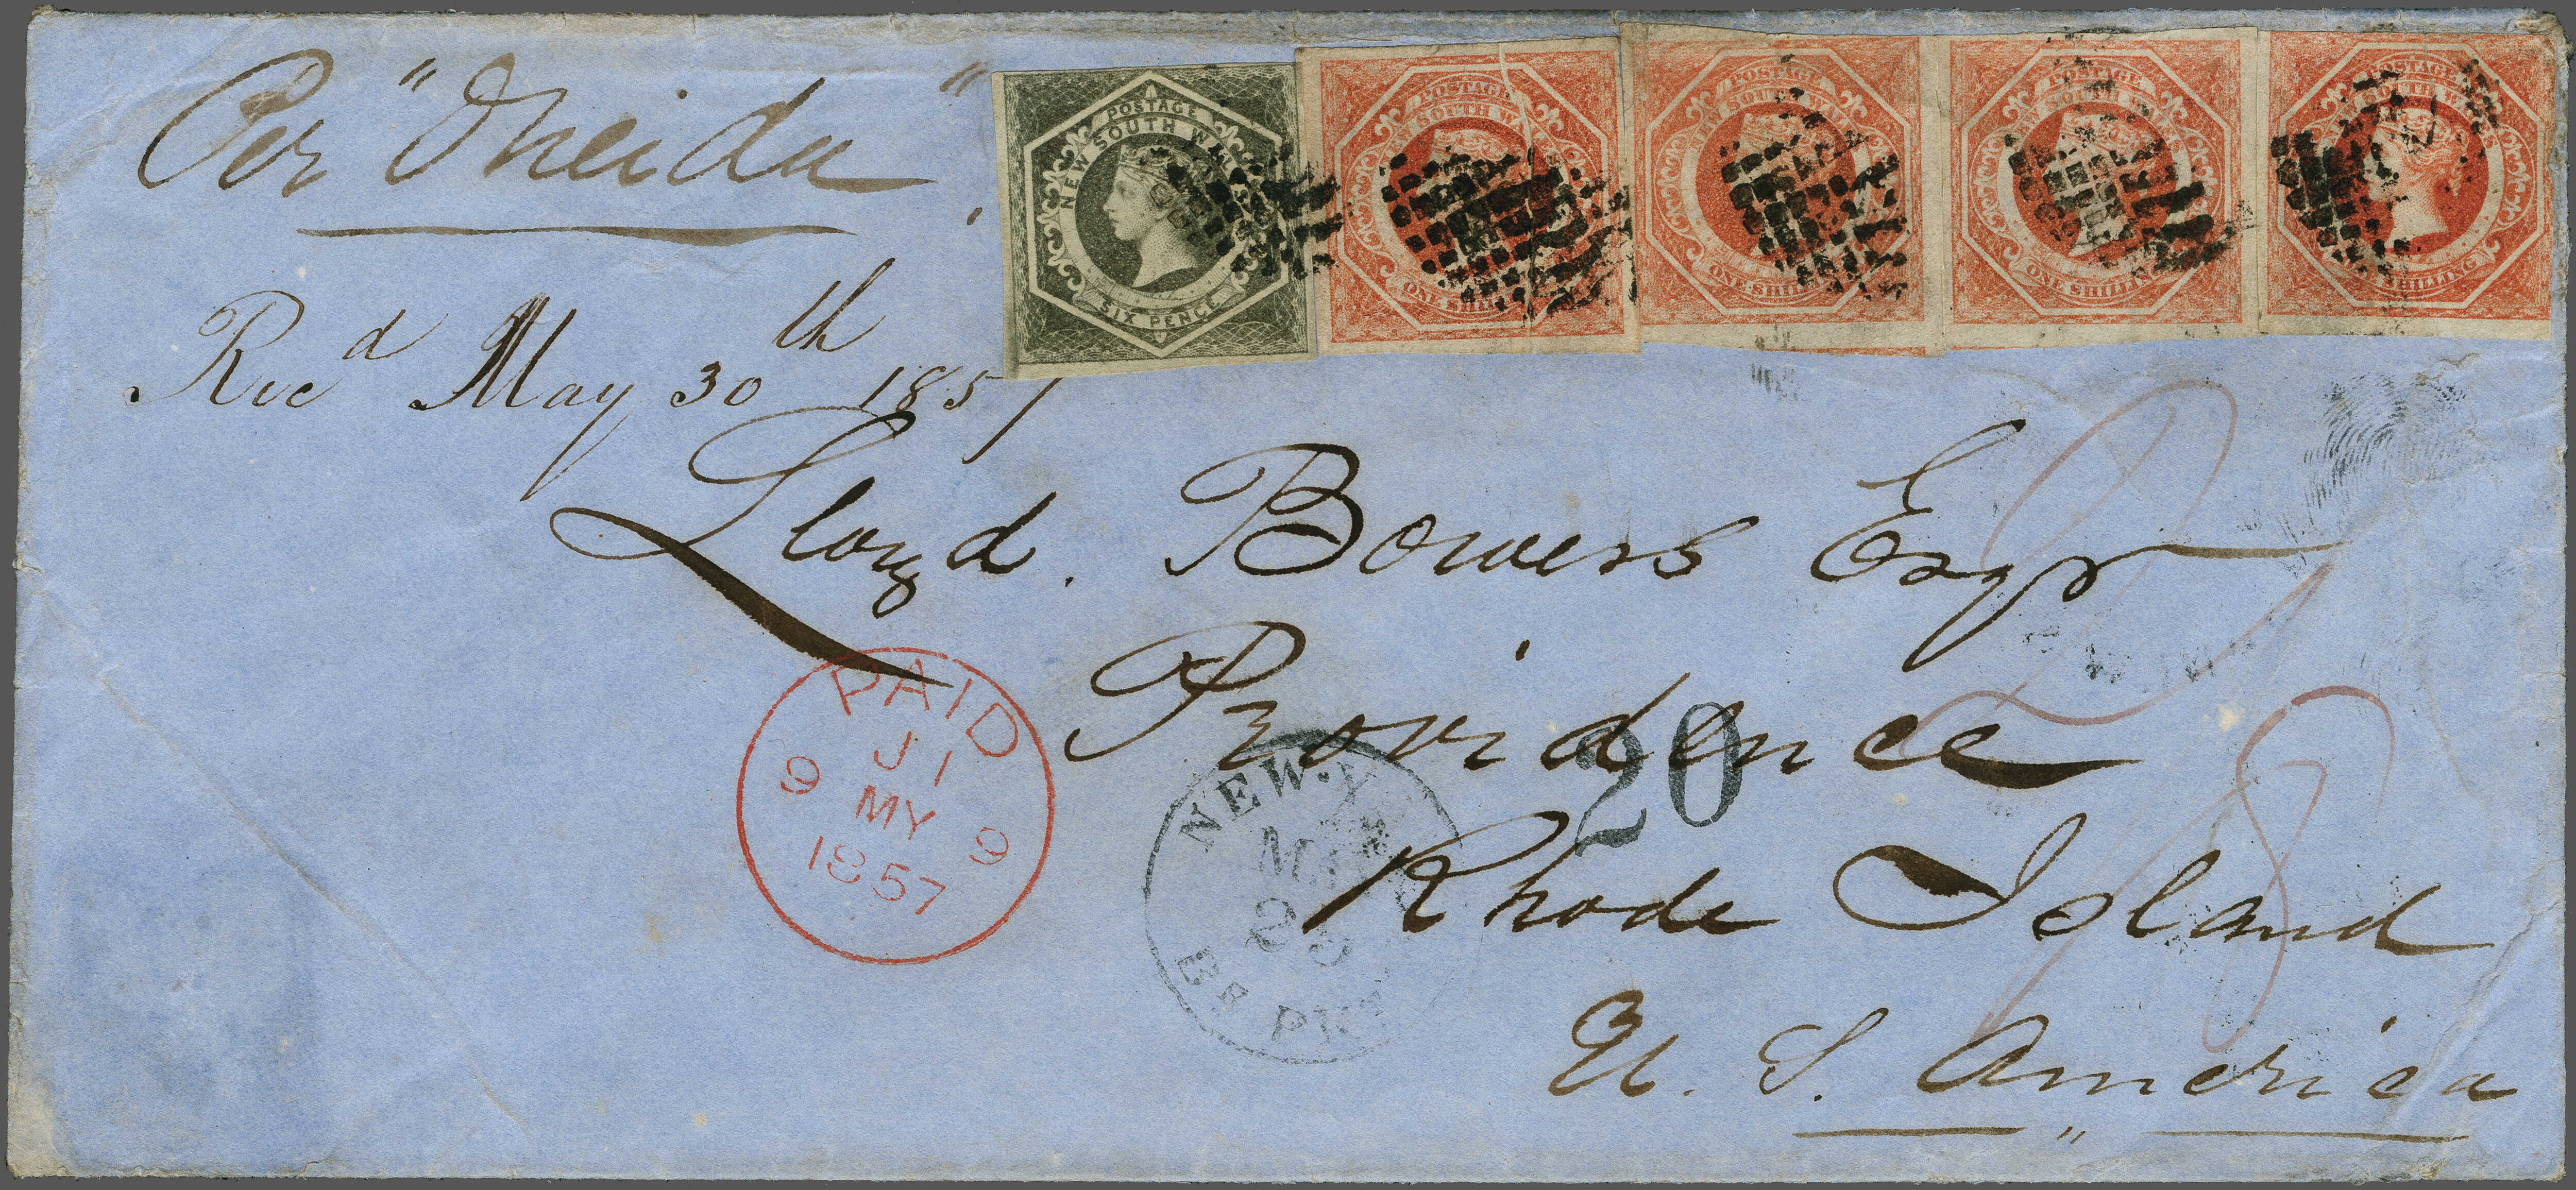 Per "Oneida".
POSTAGE
NEW SOUTH WALES
SIX PENCE
POSTAGE
NEW SOUTH WALES
ONE SHILLING
POSTAGE
NEW SOUTH WALES
ONE SHILLING
POSTAGE
NEW SOUTH WALES
ONE SHILLING
POSTAGE
NEW SOUTH WALES
ONE SHILLING
Recd May 30th 1857
Lloyd. Bowers Esqr
Providence
Rhode Island
U. S. America
PAID
J1
9 MY 9
1857
20
NEW.Y
Br PKT